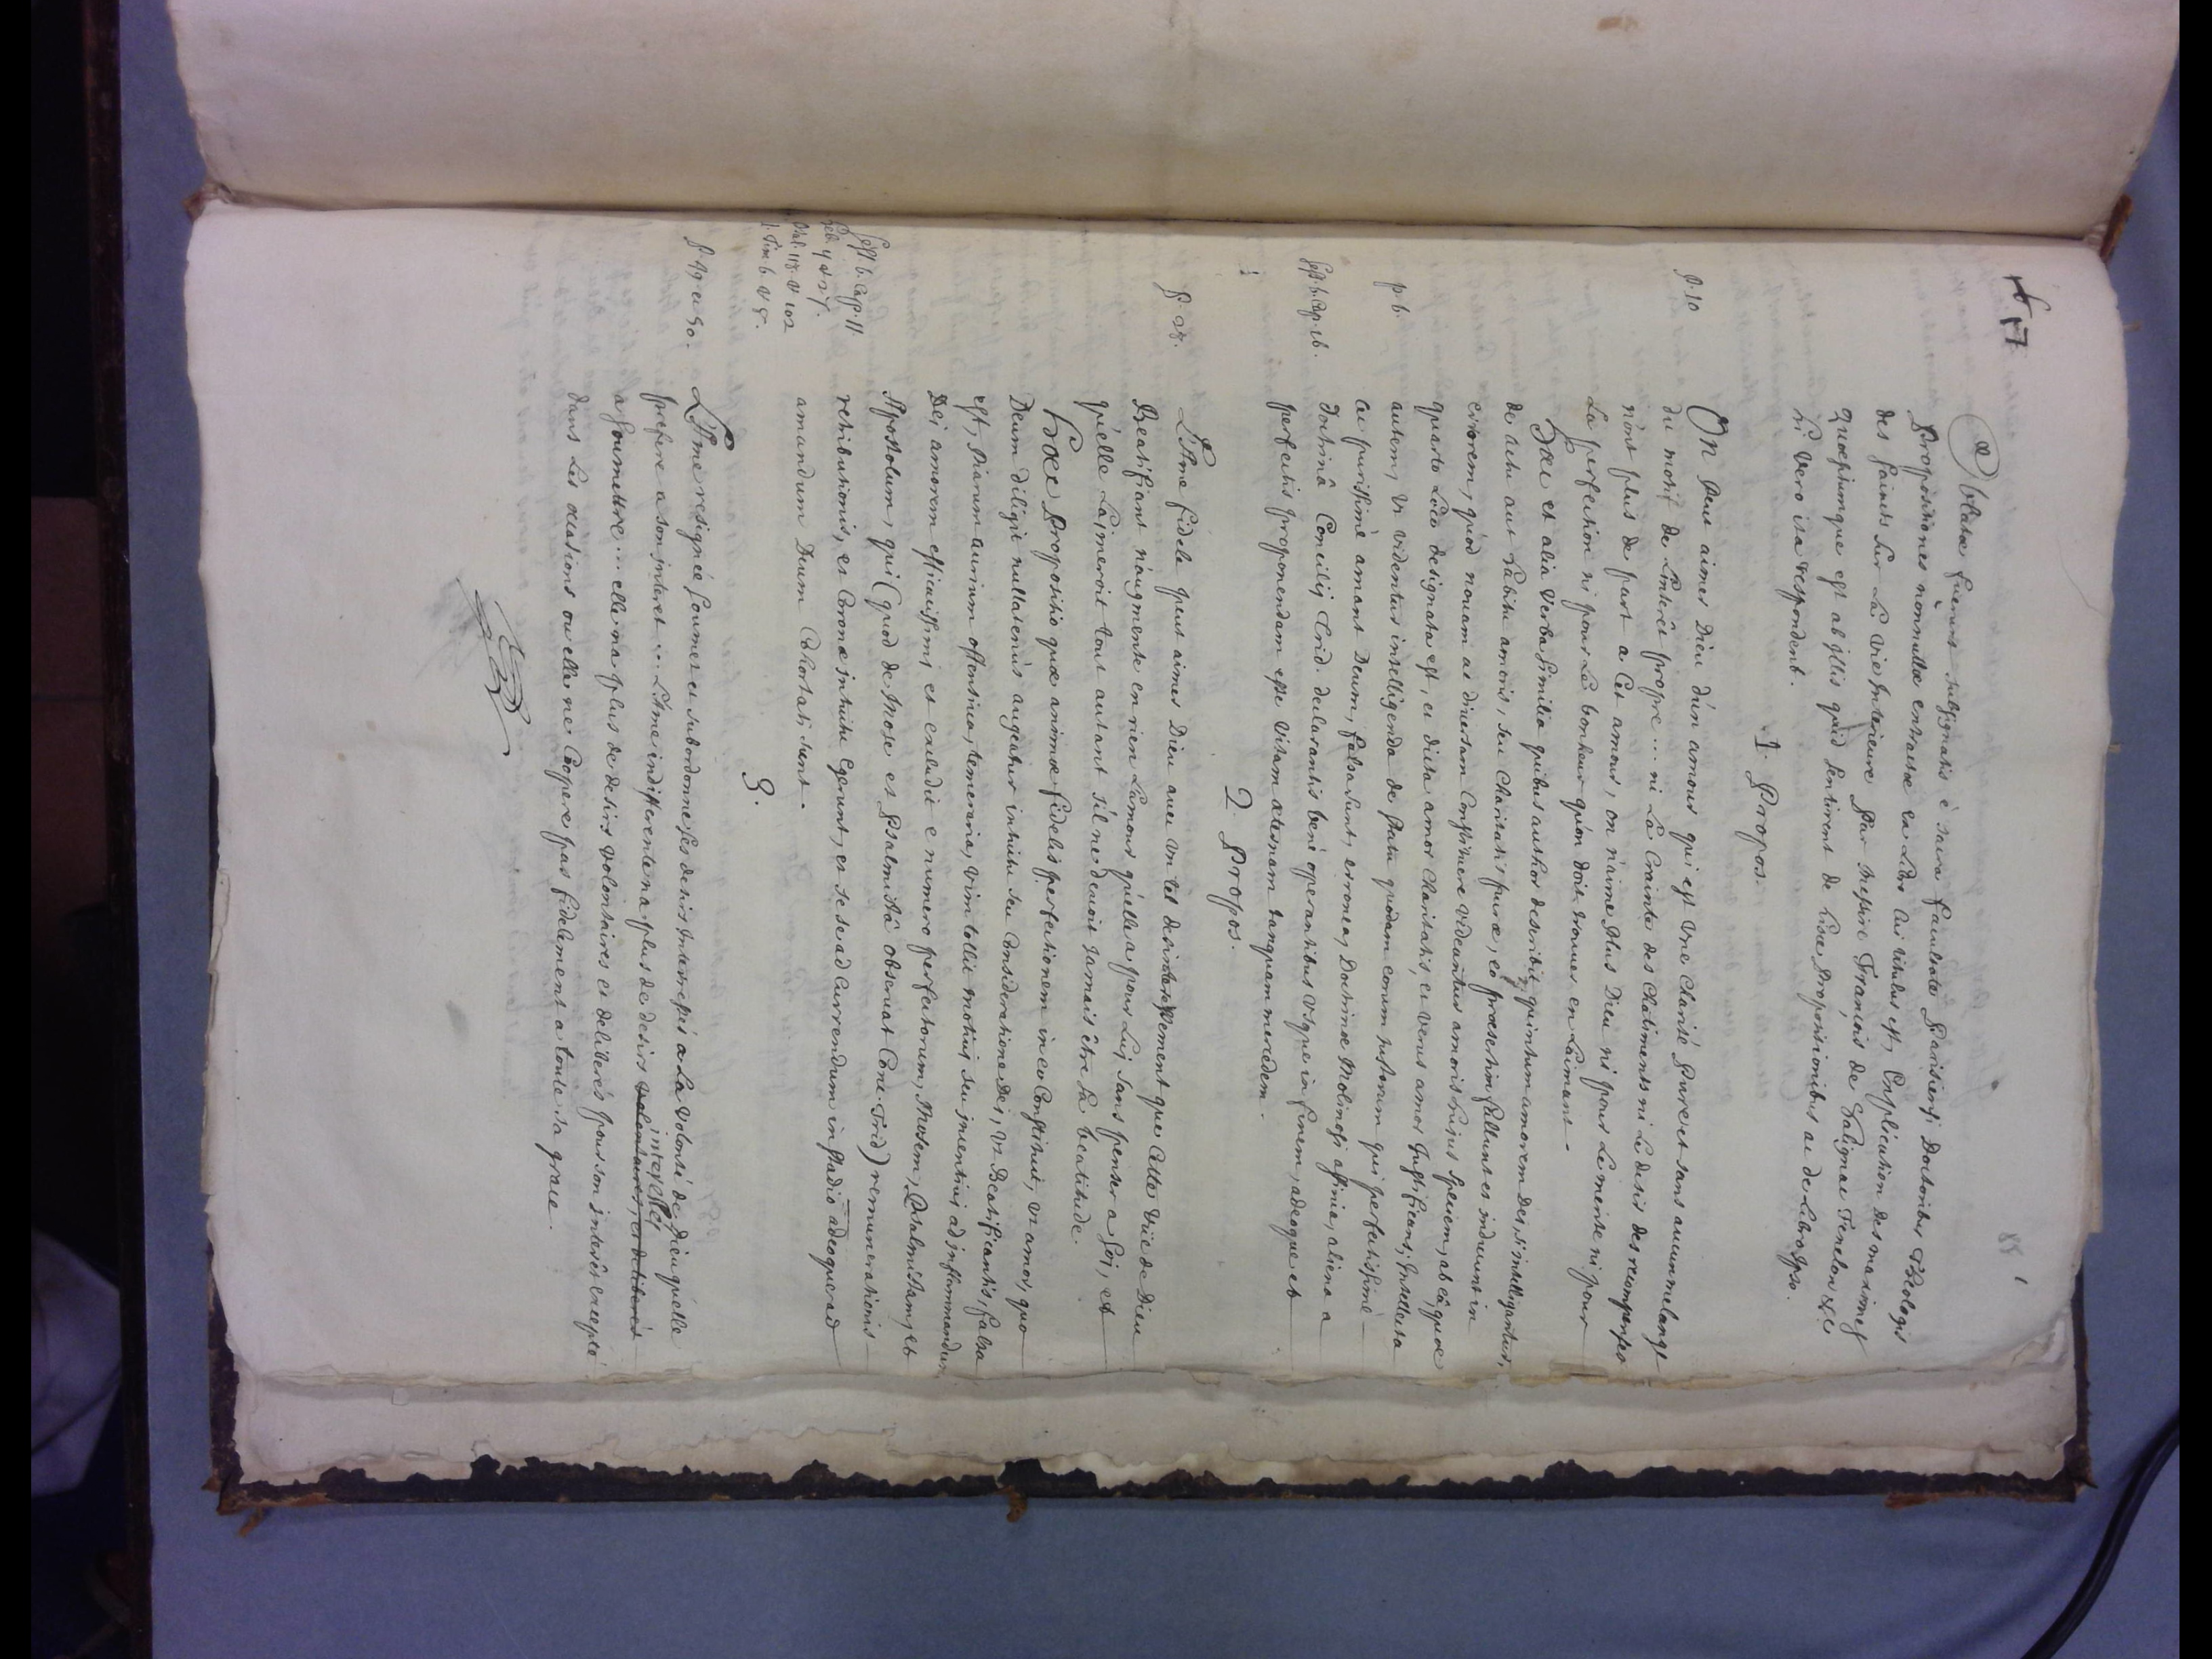 17
Oblatæ fuerunt subsignatis è sacra facultate Parisiensi Doctoribus Theologis
Propositiones nonnullæ extractæ ex Libro cui titulus est, Explication des maximes
des saints sur La Vie Interieure Par messire François de Salignac Fenelon, &c
Quæsitumque est ab illis quid sentirent de hisce Propositionibus ac de Libro Ipso.
hi Vero ita respondent.
1. Propos.
p. 10
On peut aimer Dieu d'un amour qui est Une Charité Pure et sans aucun mélange
du motif de L'interêt propre ... ni La Crainte des Châtiments ni Le desir des recompenses
n'ont plus de part a Cet amour, on n'aime plus Dieu ni pour Le merite ni pour
La perfection ni pour Le bonheur qu'on doit trouver en L'aimant.
Hæc et alia Verba similia quibus author describit quintum amorem Dei, si intelligantur,
de actu aut habitu amoris, seu Charitatis puræ, eo præsertim fallunt et inducunt in
errorem, quod novam ac diversam Constituere videantur amoris hujus speciem, ab eâ, quæ
quarto Loco designata est, et dicta amor Charitatis, et verus amor Justificans; Intellecta
p. 6.
autem, ut videntur intelligenda de statu quodam eorum justorum qui perfectissimè
ac purissimè amant Deum, falsa sunt, erronea, Doctrinæ Molinosi affinia, aliena a
Sess. 6. Cap. 16.
doctrinâ Concilij Trid. declarantis benè operantibus usque in finem, adeoque et
perfectis proponendam esse Vitam æternam tanquam mercedem.
2. Propos.
p. 28.
L'Ame fidele peut aimer Dieu avec Un tel desinteressement que Cette Vüe de Dieu
Beatifiant n'augmente en rien L'amour qu'elle a pour Luy, sans penser a Soi, et
qu'elle L'aimeroit tout autant s'il ne devoit jamais être sa beatitude.
Hæc Propositio quæ animæ fidelis perfectionem in eo Constituit, ut amor, quo
Deum diligit nullatenùs augeatur intuitu seu Consideratione Dei, ut Beatificantis, falsa
est, piarum aurium offensiva, temeraria, vim tollit motivi seu incentivi ad inflammandum
Dei amorem efficacissimi et excludit e numero perfectorum, Mosem, Psalmistam, et
Sess. 6. Cap. 11
Apostolum, qui (quod de Mose et Psalmistâ observat Conc. Trid) remunerationis
retributionis, et Coronæ intuitu Egerunt, et se se ad Currendum in stadio adeoque ad
Psal. 118. V 102
amandum Deum Cohortati sunt.
3.
p. 49 et 50.
L'Ame resignée soumet et subordonne ses desirs Interessés a La Volonté de Dieu qu'elle
prefere a son interet ... L'Ame indifferente n'a plus de desirs volontaires, et deliberés
interessés
a soumettre ... elle n'a plus de desirs volontaires et deliberés pour son interêt excepté
dans les occasions ou elle ne Coopere pas fidelement a toute sa grace.